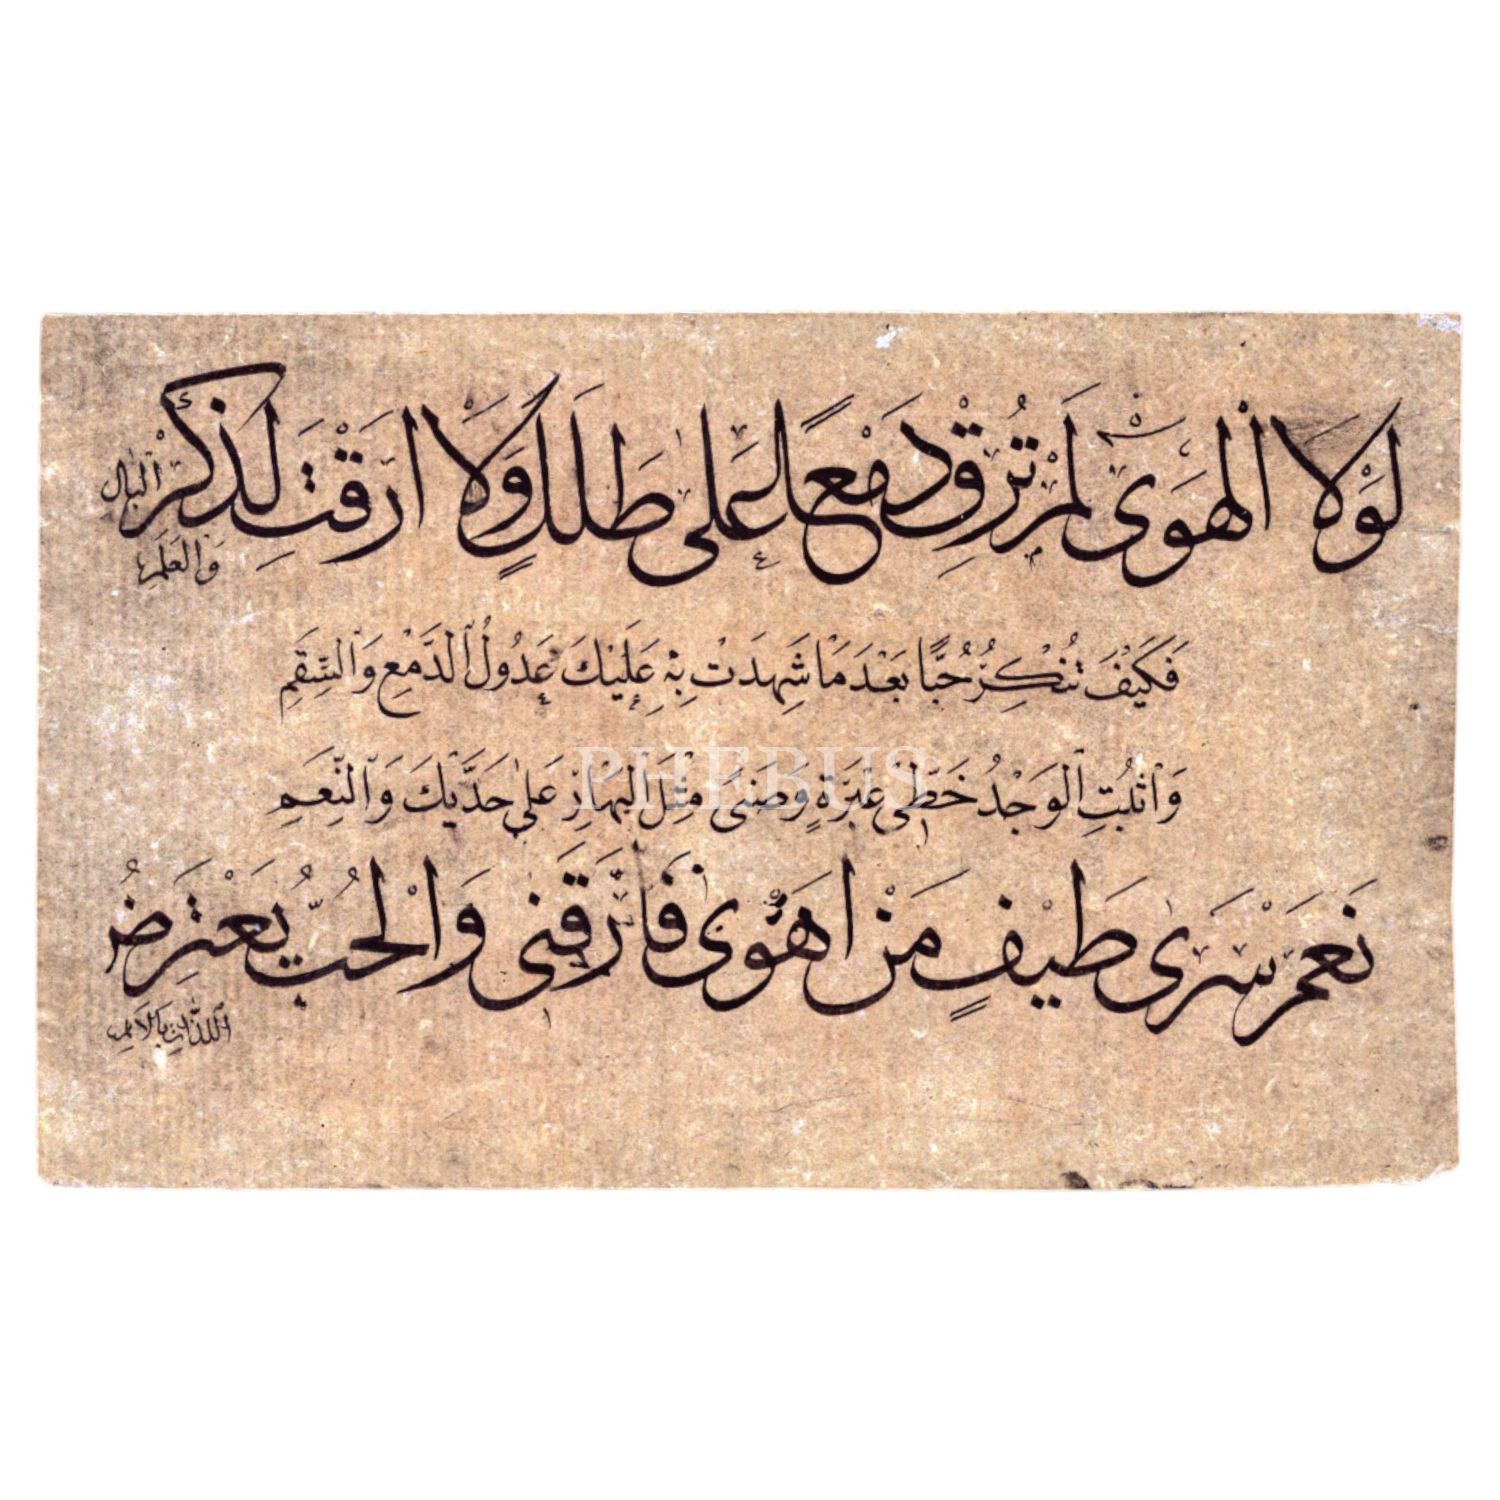 لَوْلَا الْهَوَى لَمْ تُرِقْ دَمْعًا عَلَى طَلَلٍ وَلَا اَرِقْتَ لِذِكْرِ الْبَانِ
وَالْعَلَمِ
فَكَيْفَ تُنْكِرُ حُبًّا بَعْدَ مَا شَهِدَتْ بِهِ عَلَيْكَ عُدُولُ الدَّمْعِ وَالسَّقَمِ
PHEBUS
وَاَثْبَتَ الْوَجْدُ خَطَّىْ عَبْرَةٍ وَضَنًى مِثْلَ الْبَهَارِ عَلَى خَدَّيْكَ وَالْعَنَمِ
نَعَمْ سَرَى طَيْفُ مَنْ اَهْوَى فَاَرَّقَنِى وَالْحُبُّ يَعْتَرِضُ
اللَّذَّاتِ بِالْاَلَمِ